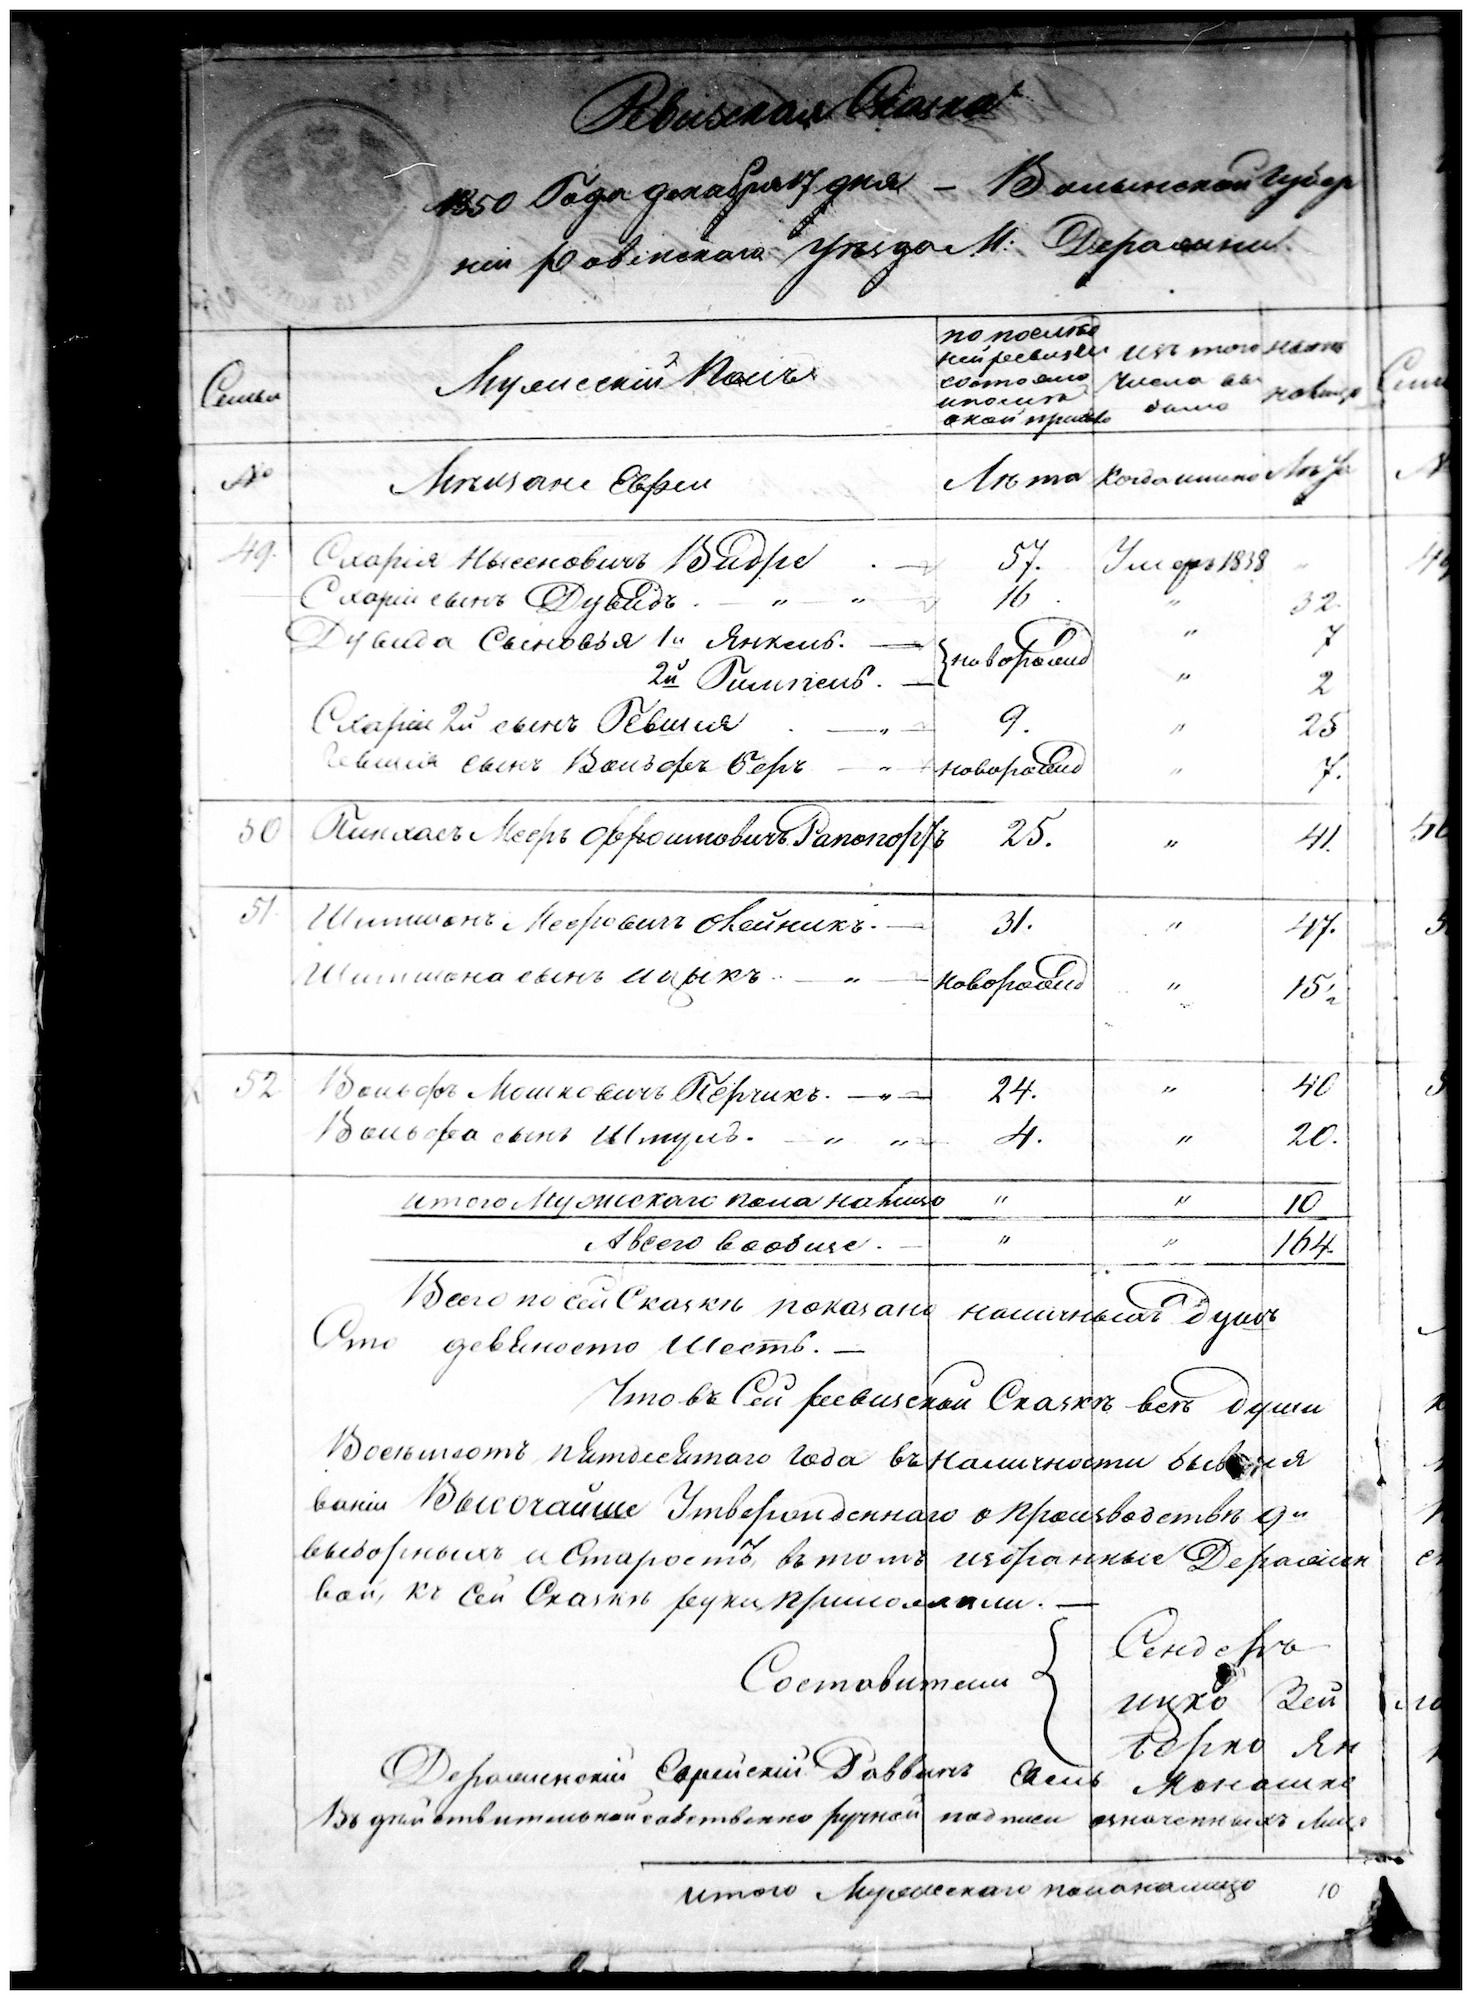 Ревизская Сказка
1850 Года декабря 17 дня – Волынской Губер
ніи Ровенского Уезда М: Деражни
Семьи
Мужескій Полъ
по послѣд
ней ревизіи
состояло
и послѣ
оной прибыло
изъ того
числа вы
было
нынѣ
налицо
№
Мѣщане Евреи
Лѣта
когда именно
Лѣта
49. Схарія Нысеновичъ Видре . — 57. Умеръ 1838 "
Схаріи сынъ Дувидъ. — " — " 16 . " 32.
Дувида Сыновья 1й Янкель. — новорожд " 7
2й Гимпель. — " 2
Схаріи 2й сынъ Гевшия . — " — 9. " 25
Гевшия сынъ Вольфъ Беръ — " новорожд " 7.
50 Пинхасъ Мееръ Офроимовичъ Рапопортъ 25. " 41.
51 Шимшонъ Мееровичъ Олейникъ. — 31. " 47.
Шимшона сынъ Ицыкъ. — " — новорожд " 15½
52 Вольфъ Мошковичъ Перчикъ. — " — 24. " 40
Вольфа сынъ Шмуль. — " " — 4. " 20.
итого Мужескаго пола налицо " " 10
А всего вообще. — " " 164.
Всего по сей Сказкѣ показано наличныхъ душъ
Сто девяносто Шесть. —
Что въ Сей ревизской Сказкѣ всѣ души
Восемьсотъ пятдесятаго года въ наличности
ваніи Высочайше Утвержденнаго о производствѣ 9й
выборныхъ и Старостъ, въ томъ избранные Деражен
вой, къ Сей Сказкѣ руки приложили. —
Составители { Сендеръ
Ицко Зей
Берко Ян
Деражненскій Еврейскій Раввинъ Монашко
Въ дѣйствительной собственно ручной подписи означенныхъ лицъ
итого Мужескаго пола налицо 10